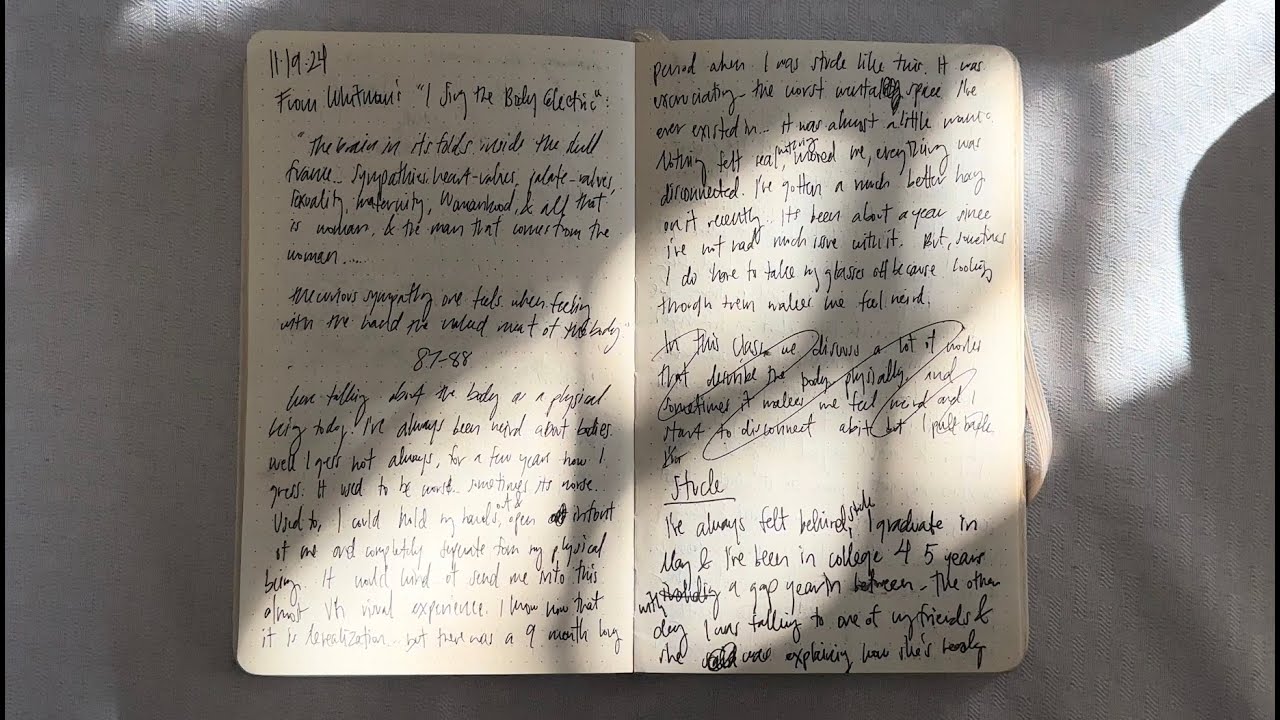 11.19.24
From Whitman's "I Sing the Body Electric":
"The brain in its folds inside the skull
frame... sympathies, heart-valves, palate-valves,
sexuality, maternity, Womanhood, & all that
is woman, & the man that comes from the
woman.....
The curious sympathy one feels when feeling
with the hand the naked meat of the body"
87-88
talking about the body as a physical
being today. I've always been weird about bodies.
well I gess not always, for a few years now I
gress. It used to be worse... sometimes its worse...
Used to, I could hold my hands, out & open infront
of me and completely seperate from my physical
being. It would kind of send me into this
almost VR visual experience. I know now that
it is derealization... but there was a 9 month long
period when I was stuck like this. It was
excruciating - the worst mental space I've
ever existed in... it was almost a little manic.
Nothing felt real, nothing moved me, everything was
disconnected. I've gotten a much better
on it recently. Its been about a year since
i've not had much issue with it. But, sometimes
I do have to take my glasses off because looking
though them makes me feel weird.
In this class we discuss a lot of works
that describe the body physically and
sometimes it makes me feel weird and I
start to disconnect abit but I pull back.
Stuck
I've always felt behind, stuck, I graduate in
May & I've been in college 4 5 years
with a gap year in between. The other
day I was talking to one of my friends &
she was explaining how she's